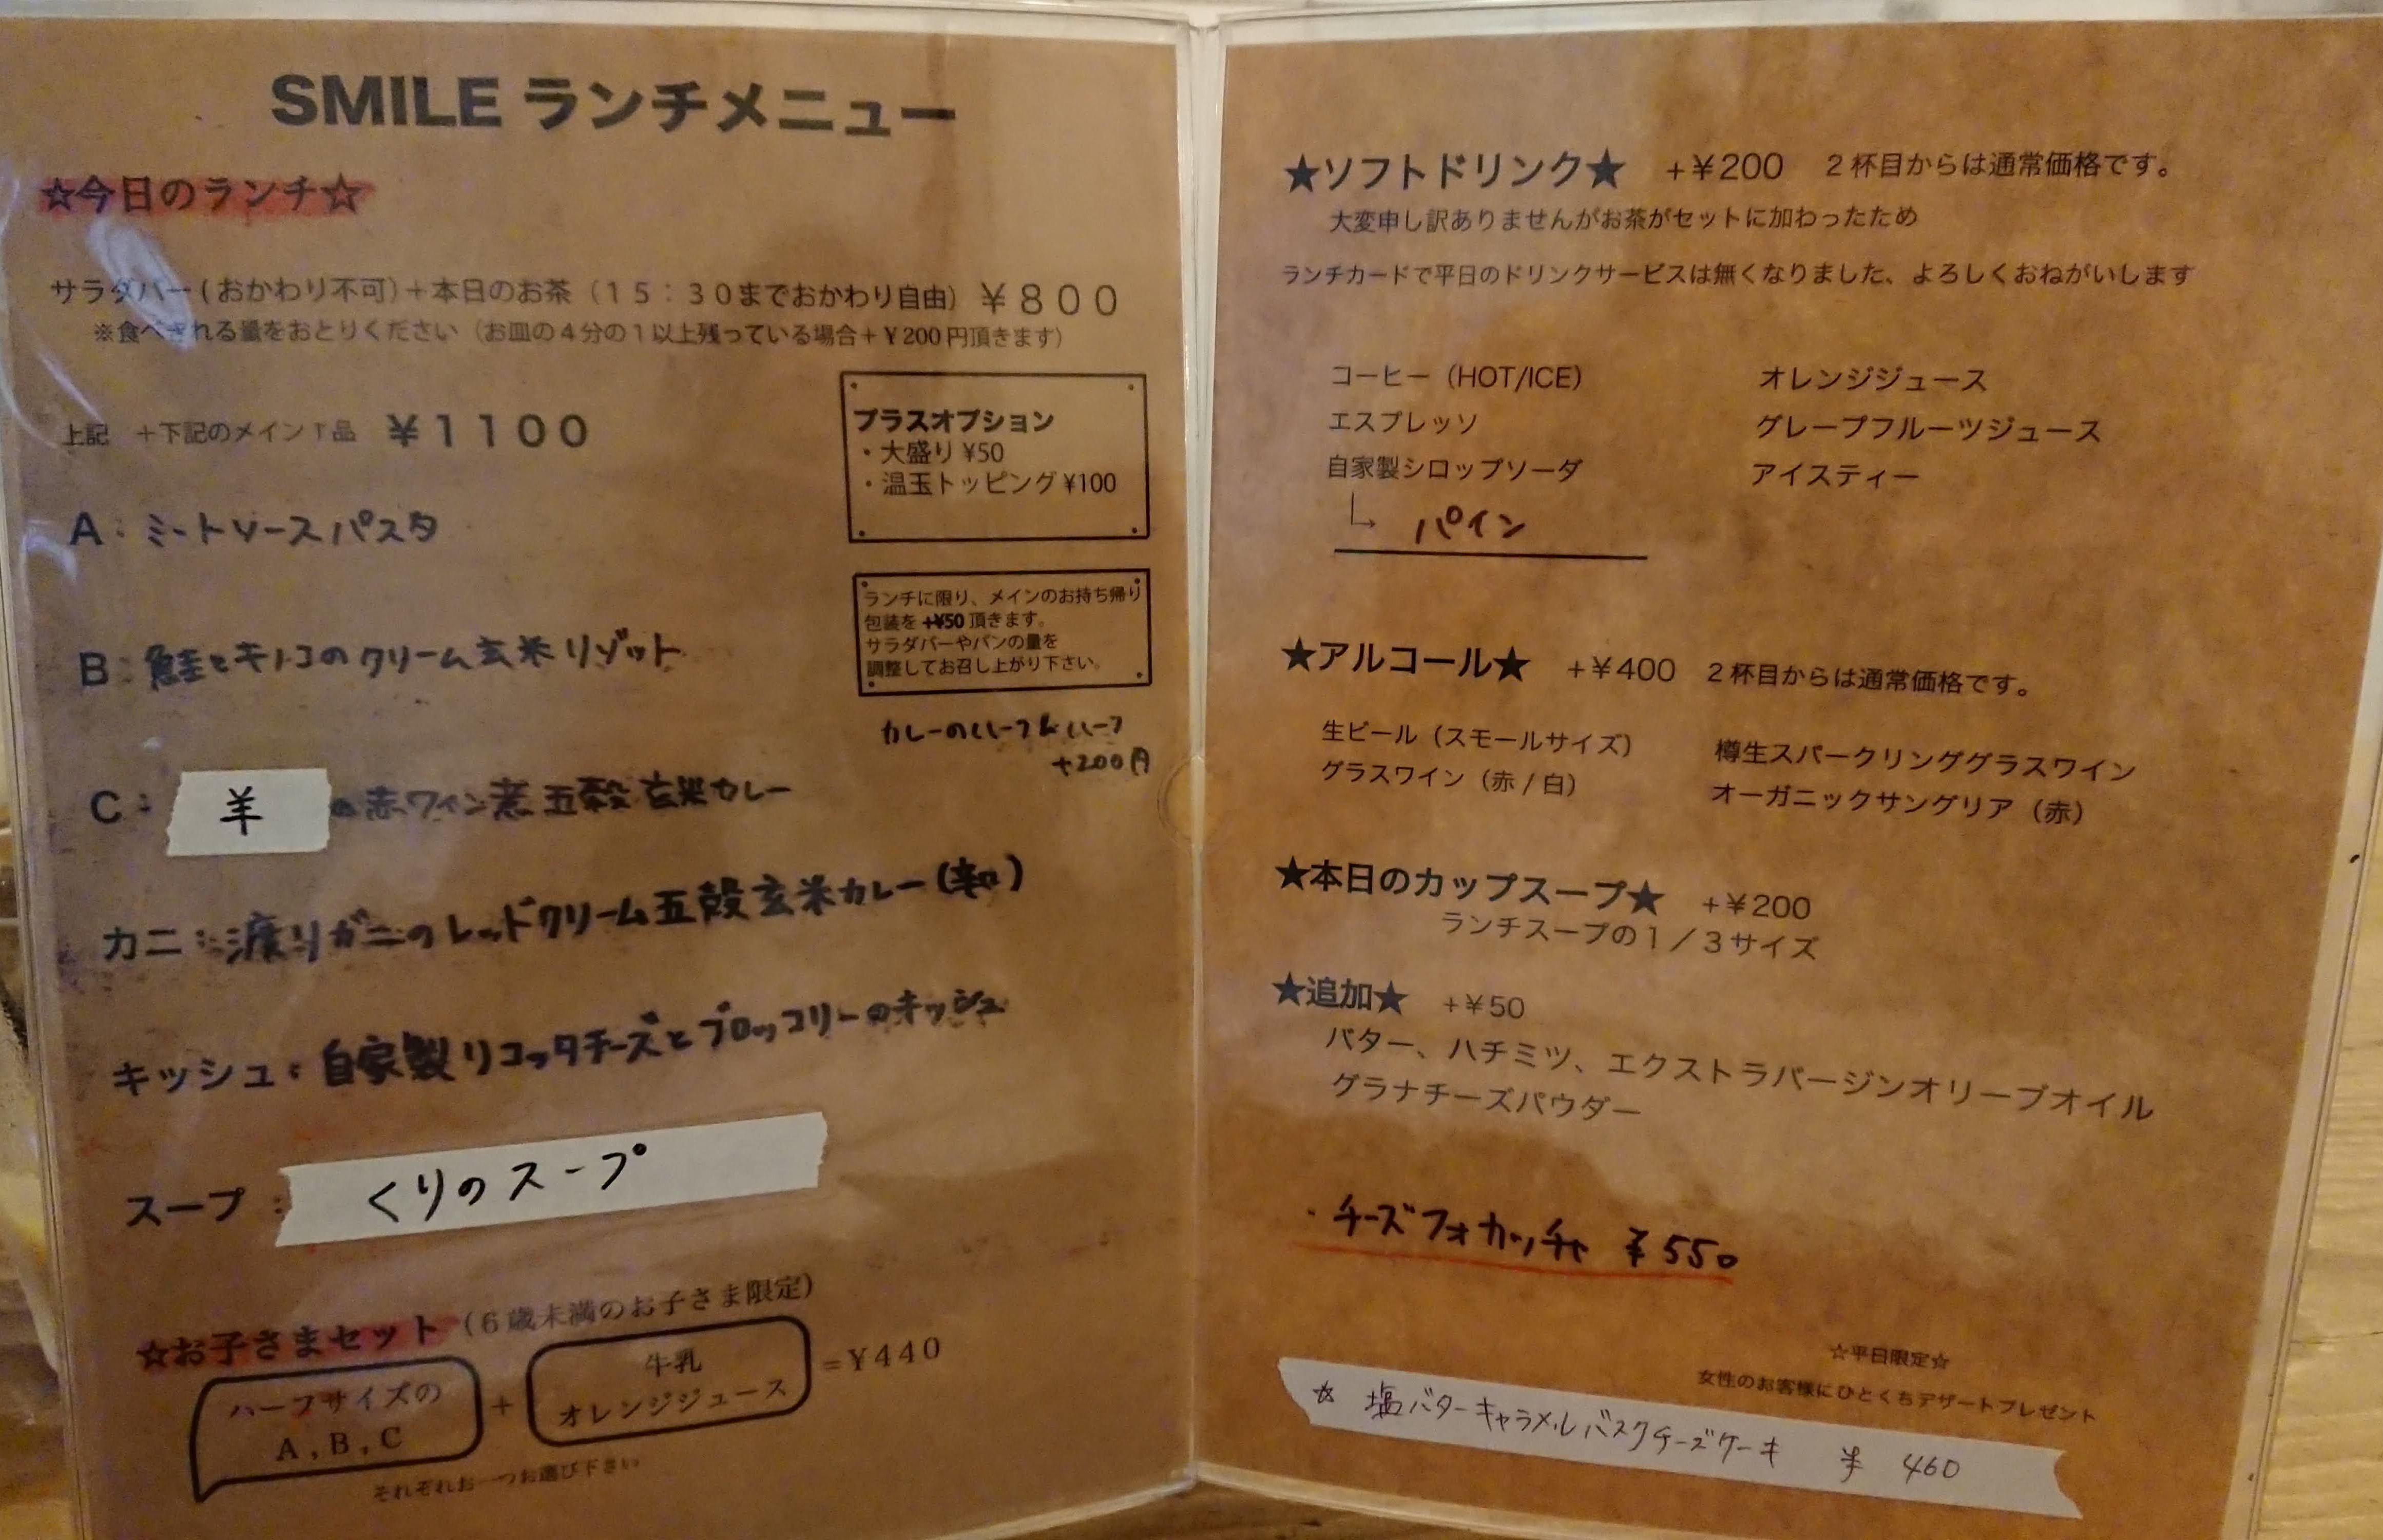 SMILE ランチメニュー
☆今日のランチ☆
サラダバー(おかわり不可)+本日のお茶(15:30までおかわり自由) ¥800
※食べきれる量をおとりください(お皿の4分の1以上残っている場合+¥200円頂きます)
上記 +下記のメイン1品 ¥1100
プラスオプション
・大盛り ¥50
・温玉トッピング ¥100
A:ミートソースパスタ
ランチに限り、メインのお持ち帰り
包装を+¥50頂きます。
サラダバーやパンの量を
調整してお召し上がり下さい。
B:鮭とキノコのクリーム玄米リゾット
カレーのハーフ&ハーフ
+200円
C: 羊 の赤ワイン煮五穀玄米カレー
カニ:渡りガニのレッドクリーム五穀玄米カレー(辛口)
キッシュ:自家製リコッタチーズとブロッコリーのキッシュ
スープ:くりのスープ
☆お子さまセット(6歳未満のお子さま限定)
ハーフサイズの
A,B,C
+
牛乳
オレンジジュース
=¥440
それぞれお一つお選び下さい
★ソフトドリンク★ +¥200 2杯目からは通常価格です。
大変申し訳ありませんがお茶がセットに加わったため
ランチカードで平日のドリンクサービスは無くなりました、よろしくおねがいします
コーヒー(HOT/ICE) オレンジジュース
エスプレッソ グレープフルーツジュース
自家製シロップソーダ アイスティー
↳ パイン
★アルコール★ +¥400 2杯目からは通常価格です。
生ビール(スモールサイズ) 樽生スパークリンググラスワイン
グラスワイン(赤/白) オーガニックサングリア(赤)
★本日のカップスープ★ +¥200
ランチスープの1/3サイズ
★追加★ +¥50
バター、ハチミツ、エクストラバージンオリーブオイル
グラナチーズパウダー
・チーズフォカッチャ ¥550
☆平日限定☆
女性のお客様にひとくちデザートプレゼント
☆ 塩バターキャラメルバスクチーズケーキ ¥460